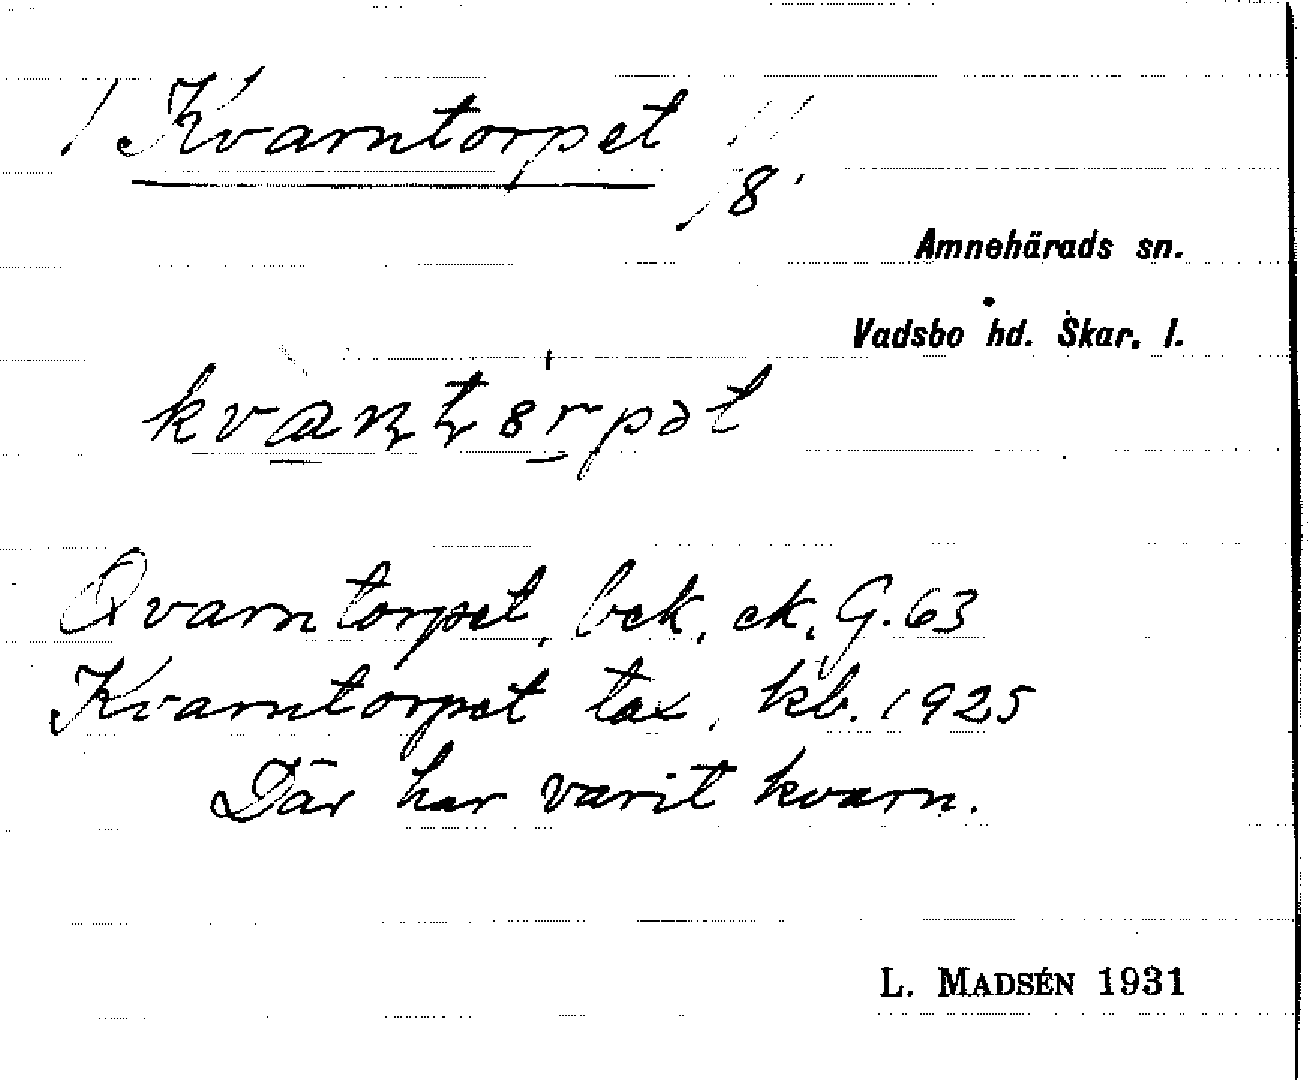 Kvarntorpet
/8.
Amnehärads sn.
Vadsbo hd. Skar. l.
Qvarntorpet, bek, ek, G. 63
Kvarntorpet tax, kb. 1925
Där har varit kvarn.
L. MADSÉN 1931